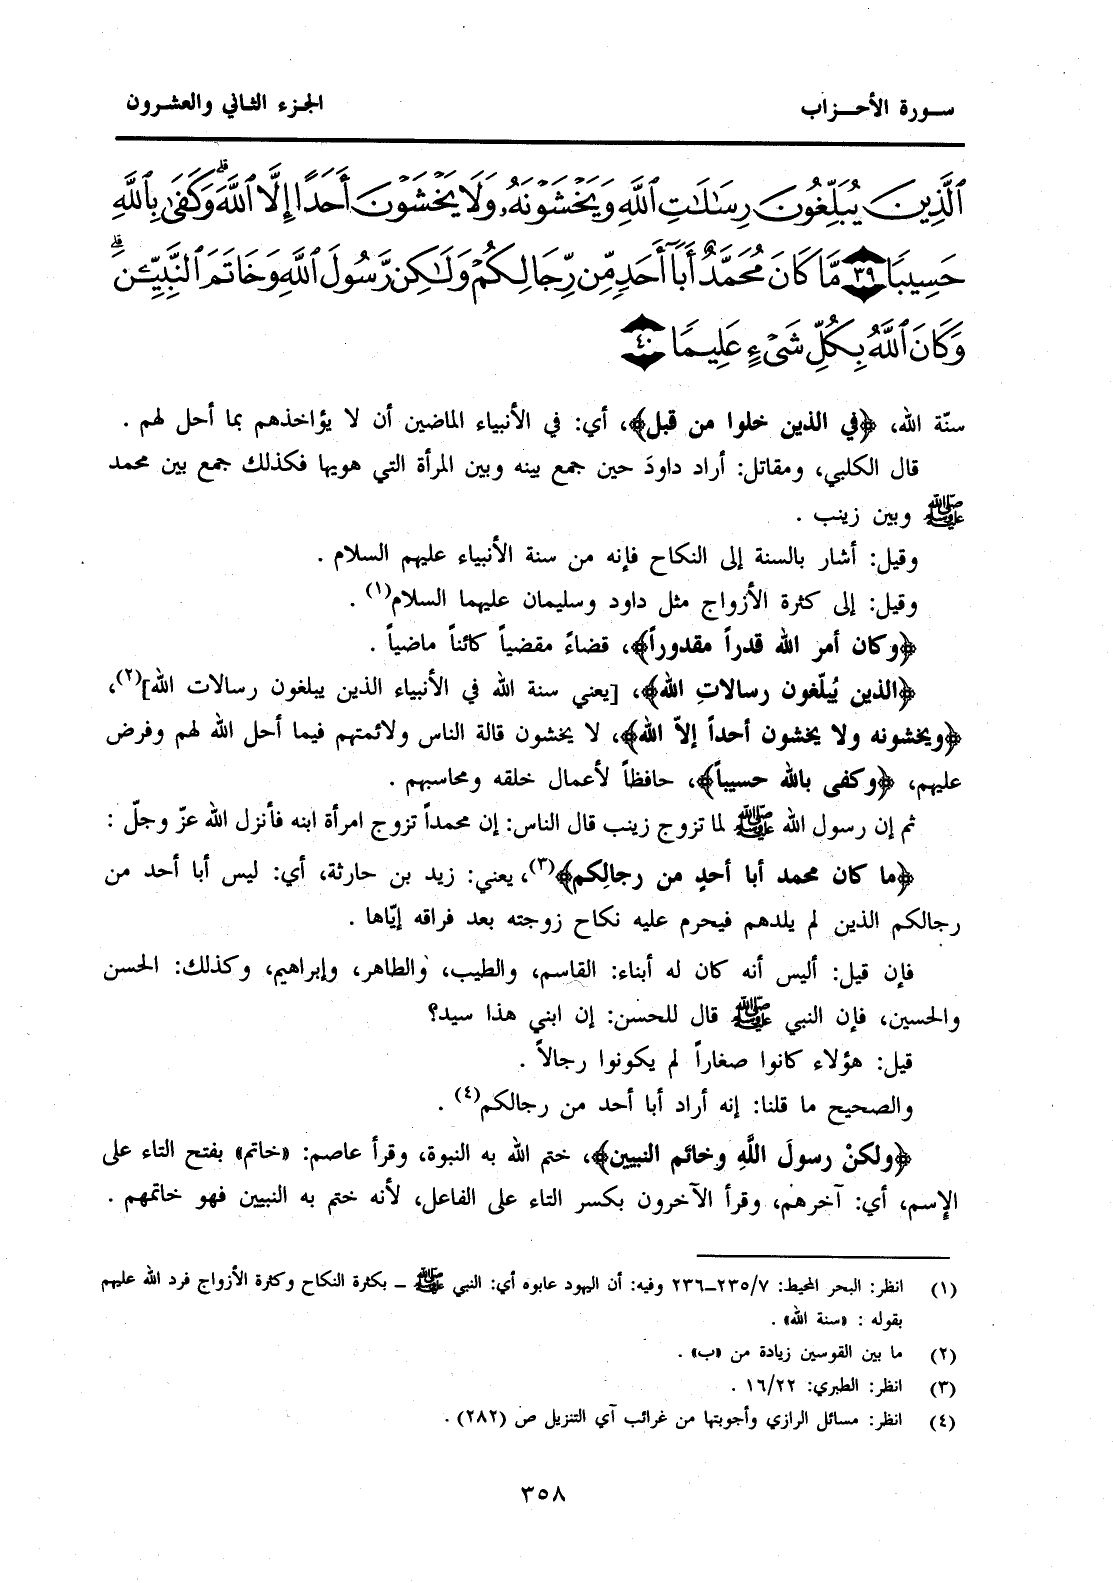 سورة الأحزاب
الجزء الثاني والعشرون
ٱلَّذِينَ يُبَلِّغُونَ رِسَٰلَٰتِ ٱللَّهِ وَيَخْشَوْنَهُۥ وَلَا يَخْشَوْنَ أَحَدًا إِلَّا ٱللَّهَ ۗ وَكَفَىٰ بِٱللَّهِ
حَسِيبًا ٣٩ مَّا كَانَ مُحَمَّدٌ أَبَآ أَحَدٍ مِّن رِّجَالِكُمْ وَلَٰكِن رَّسُولَ ٱللَّهِ وَخَاتَمَ ٱلنَّبِيِّـۧنَ ۗ
وَكَانَ ٱللَّهُ بِكُلِّ شَىْءٍ عَلِيمًا ٤٠
سنّة الله، ﴿في الذين خلوا من قبل﴾، أي: في الأنبياء الماضين أن لا يؤاخذهم بما أحل لهم .
قال الكلبي، ومقاتل: أراد داودَ حين جمع بينه وبين المرأة التي هويها فكذلك جمع بين محمد
ﷺ وبين زينب .
وقيل: أشار بالسنة إلى النكاح فإنه من سنة الأنبياء عليهم السلام .
وقيل: إلى كثرة الأزواج مثل داود وسليمان عليهما السلام(١) .
﴿وكان أمر الله قدراً مقدوراً﴾، قضاءً مقضياً كائناً ماضياً .
﴿الذين يُبلّغون رسالاتِ الله﴾، [يعني سنة الله في الأنبياء الذين يبلغون رسالات الله](٢)،
﴿ويخشونه ولا يخشون أحداً إلاّ الله﴾، لا يخشون قالة الناس ولائمتهم فيما أحل الله لهم وفرض
عليهم، ﴿وكفى بالله حسيباً﴾، حافظاً لأعمال خلقه ومحاسبهم .
ثم إن رسول الله ﷺ لما تزوج زينب قال الناس: إن محمداً تزوج امرأة ابنه فأنزل الله عزّ وجلّ :
﴿ما كان محمد أبا أحدٍ من رجالِكم﴾(٣)، يعني: زيد بن حارثة، أي: ليس أبا أحد من
رجالكم الذين لم يلدهم فيحرم عليه نكاح زوجته بعد فراقه إيّاها .
فإن قيل: أليس أنه كان له أبناء: القاسم، والطيب، والطاهر، وإبراهيم، وكذلك: الحسن
والحسين، فإن النبي ﷺ قال للحسن: إن ابني هذا سيد؟
قيل: هؤلاء كانوا صغاراً لم يكونوا رجالاً .
والصحيح ما قلنا: إنه أراد أبا أحد من رجالكم(٤) .
﴿ولكنْ رسولَ اللَّهِ وخاتَم النبيين﴾، ختم الله به النبوة، وقرأ عاصم: «خاتم» بفتح التاء على
الإسم، أي: آخرهم، وقرأ الآخرون بكسر التاء على الفاعل، لأنه ختم به النبيين فهو خاتمهم .
(١) انظر: البحر المحيط: ٢٣٥/٧ـ٢٣٦ وفيه: أن اليهود عابوه أي: النبي ﷺ ـ بكثرة النكاح وكثرة الأزواج فرد الله عليهم
بقوله : «سنة الله» .
(٢) ما بين القوسين زيادة من «ب» .
(٣) انظر: الطبري: ١٦/٢٢ .
(٤) انظر: مسائل الرازي وأجوبتها من غرائب آي التنزيل ص (٢٨٢) .
٣٥٨